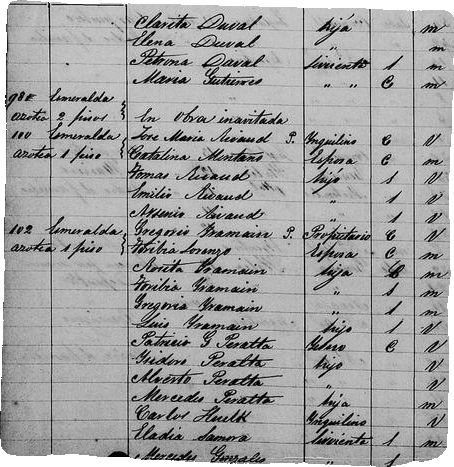 Clarita Duval hija m
Elena Duval " m
Petrona Duval Sirvienta S m
Maria Gutierres " " C m
98E Esmeralda
azotea 2 pisos } En obra inavitada
100 Esmeralda } Jose Maria Rivaud P. Ynquilino C V
azotea 1 piso Catalina Montano Esposa C m
Tomas Rivaud hijo S V
Emilio Rivaud " S V
Rivaud " S V
102 Esmeralda } Gregorio Gramain P. Propietario C V
azotea 1 piso Toribia Lorenzo Esposa C m
Gramain hija C m
Toribia Gramain " S m
Gregoria Gramain " S m
Luis Gramain hijo S V
Patricio G Peralta Yerno C V
Ysidoro Peralta hijo V
Alverto Peralta " V
Mercedes Peralta hija m
Carlos Ynquilino V
Eladia Samora Sirvienta S m
Mercedes Gonzales " S